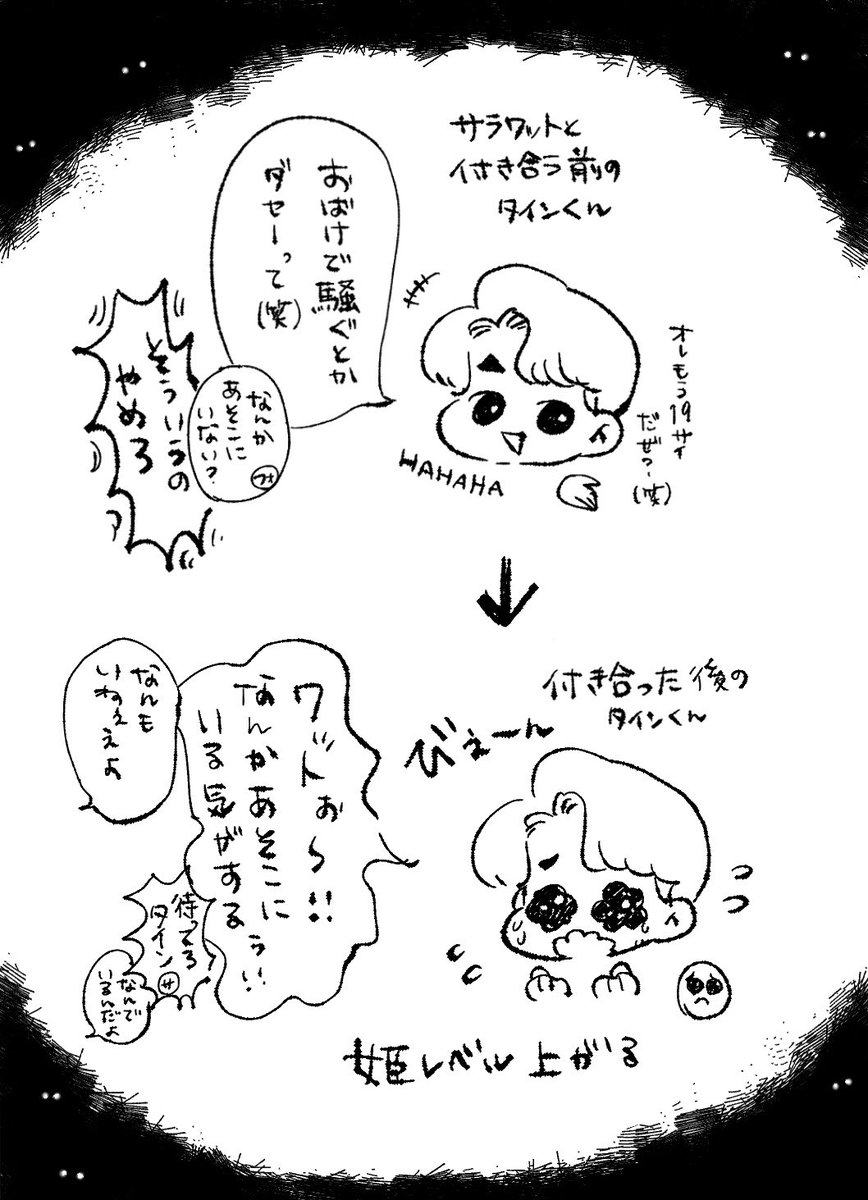 サラワットと
付き合う前の
タインくん
おばけで騒ぐとか
ダセーって
(笑)
オレもう19サイ
だぜっ〜
(笑)
HAHAHA
なんか
あそこに
いない?
そういうの
やめろ
付き合った後の
タインくん
びぇーん
ワットぉ〜!!
なんかあそこに
いる気がするぅ!!
なんも
いねぇよ
待ってろ
タイン
サ
なんで
いるんだよ
姫レベル上がる